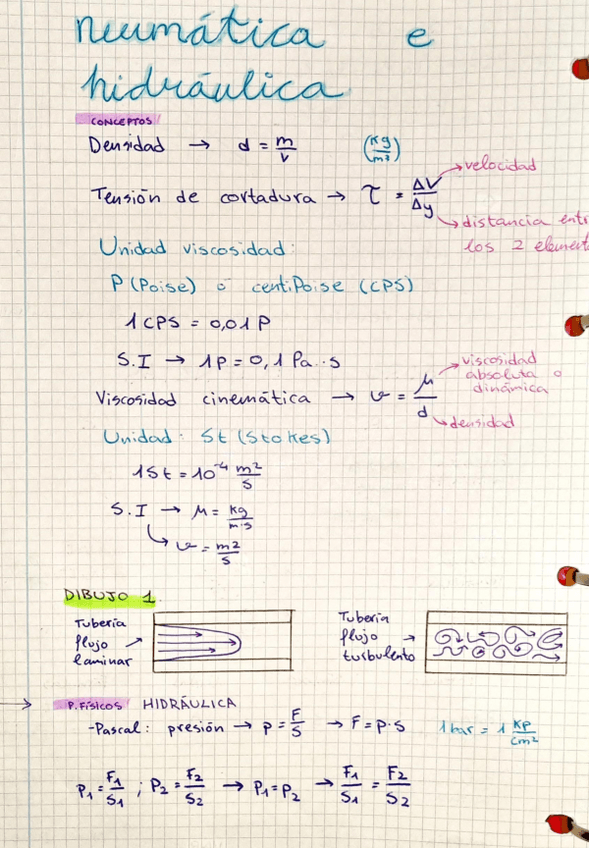 neumática e
hidráulica
CONCEPTOS
Densidad → d = m/v (Kg/m³)
Tensión de cortadura → τ = ΔV/Δy
→ velocidad
→ distancia entr
los 2 element
Unidad viscosidad:
P (Poise) ó centiPoise (CPS)
1 CPS = 0,01 P
S.I → 1P = 0,1 Pa·s
Viscosidad cinemática → ν = μ/d
→ viscosidad
absoluta o
dinámica
→ densidad
Unidad: St (Stokes)
1 St = 10⁻⁴ m²/s
S.I → μ = kg/m·s
→ ν = m²/s
DIBUJO 1
Tubería
flujo →
laminar
Tubería
flujo →
turbulento
→ P. Físicos HIDRÁULICA
-Pascal: presión → p = F/S → F = p·S 1 bar = 1 Kp/cm²
P₁ = F₁/S₁ ; P₂ = F₂/S₂ → P₁ = P₂ → F₁/S₁ = F₂/S₂